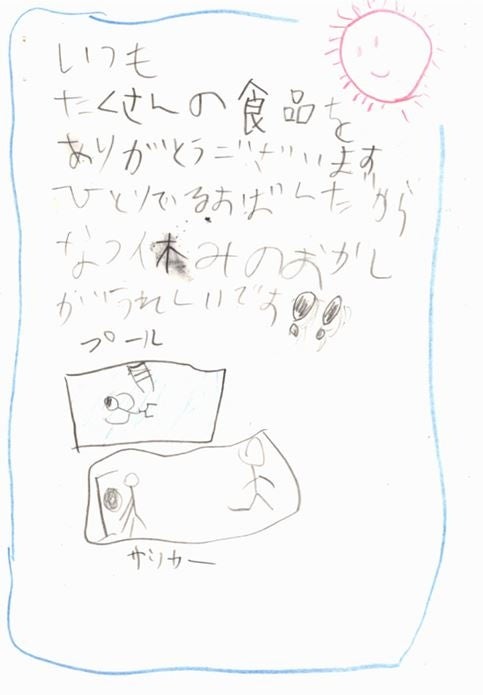 いつも
たくさんの食品を
ありがとうございます
ひとりでるすばんだから
なつ休みのおかし
がうれしいです!!
プール
サッカー